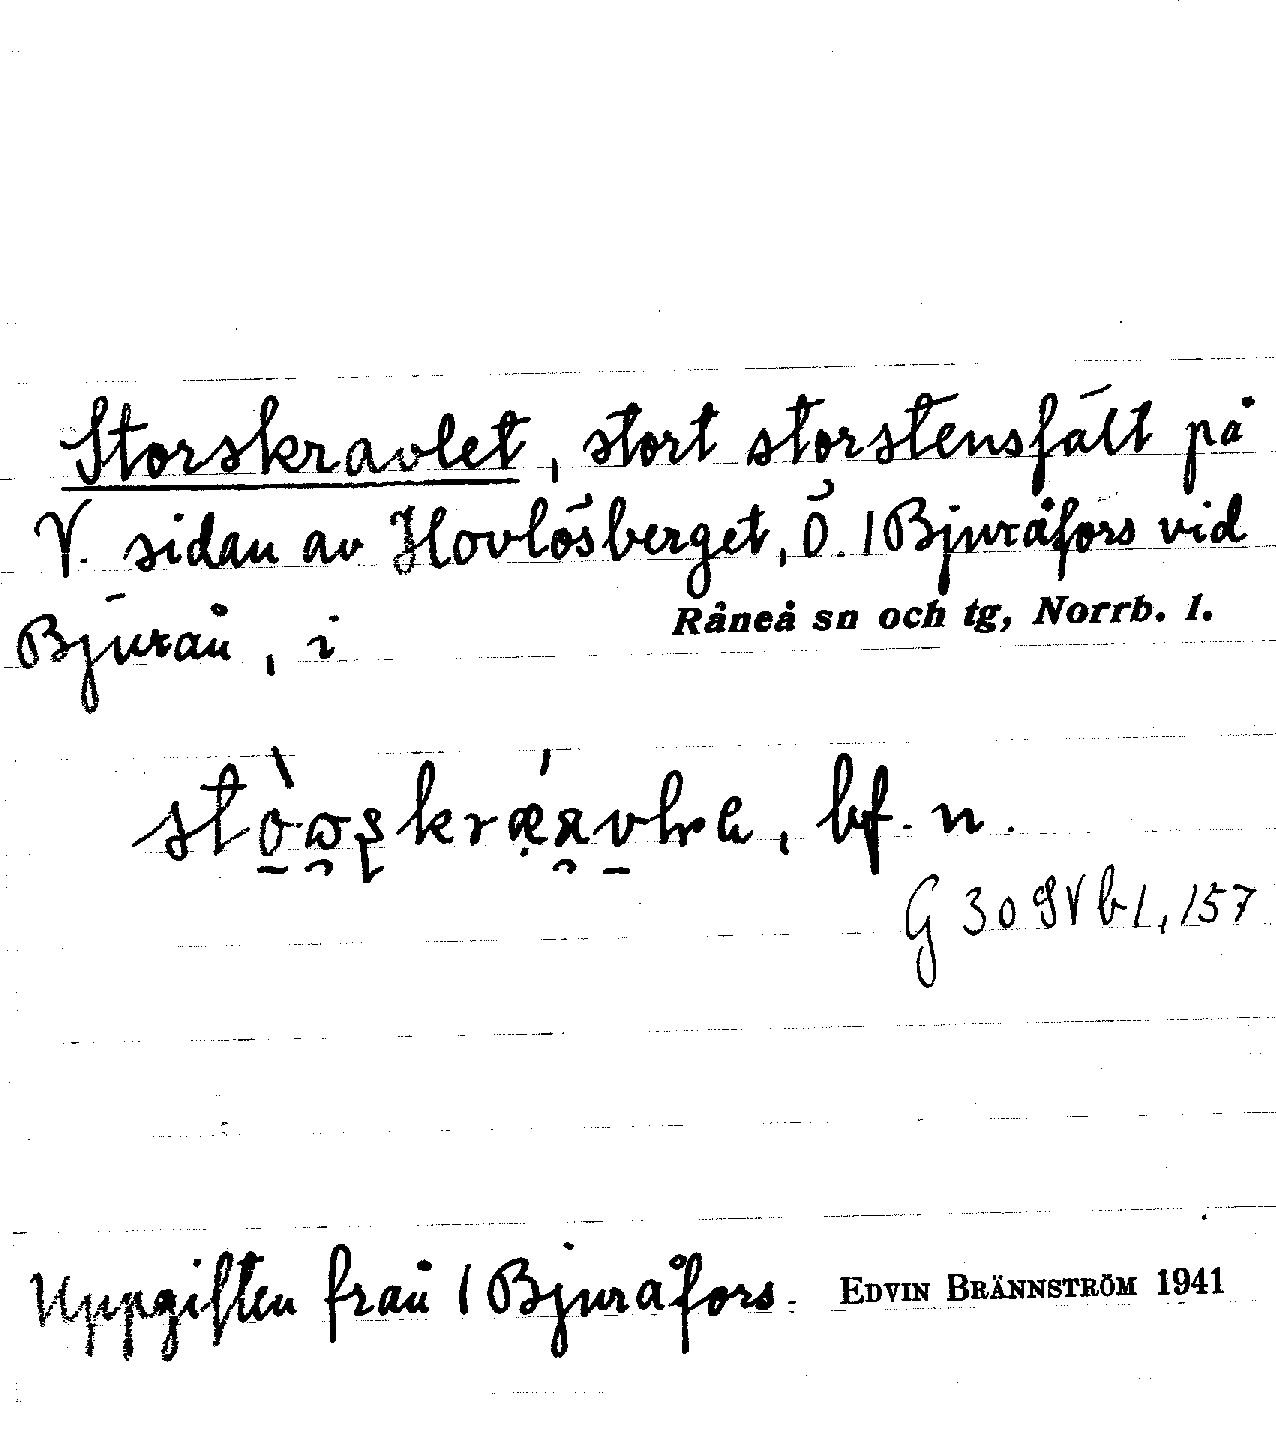 Storskravlet, stort storstensfält på
V. sidan av Hovlösberget, Ö. 1 Bjuråfors vid
Bjurån, i Råneå sn och tg, Norrb. l.
bf. n.
G 30 SV b 1, 157
Uppgiften från 1 Bjuråfors. EDVIN BRÄNNSTRÖM 1941